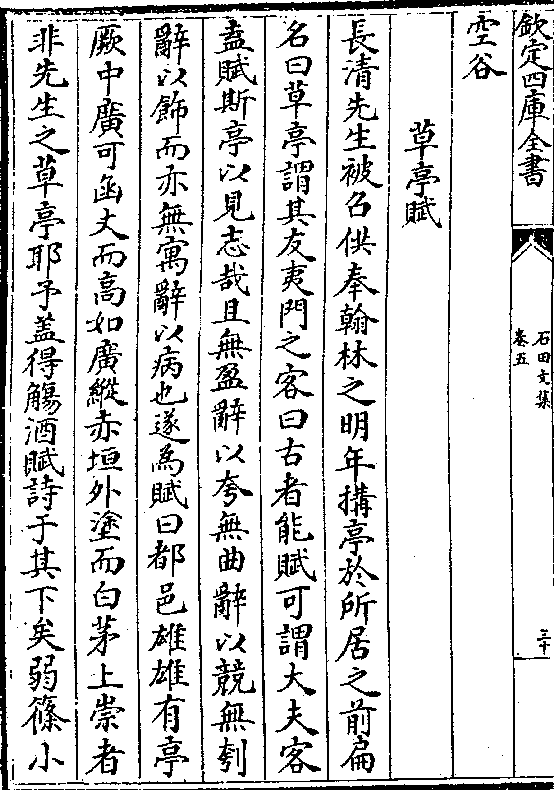 欽定四庫全書
石田文集
卷五
三十
空谷
草亭賦
長清先生被召供奉翰林之明年搆亭於所居之前扁
名曰草亭謂其友夷門之客曰古者能賦可謂大夫客
盍賦斯亭以見志哉且無盈辭以夸無曲辭以競無刳
辭以飾而亦無寓辭以病也遂為賦曰都邑雄雄有亭
厥中廣可函丈而高如廣縱赤垣外塗而白茅上崇者
非先生之草亭耶予盖得觴酒賦詩于其下矣弱篠小